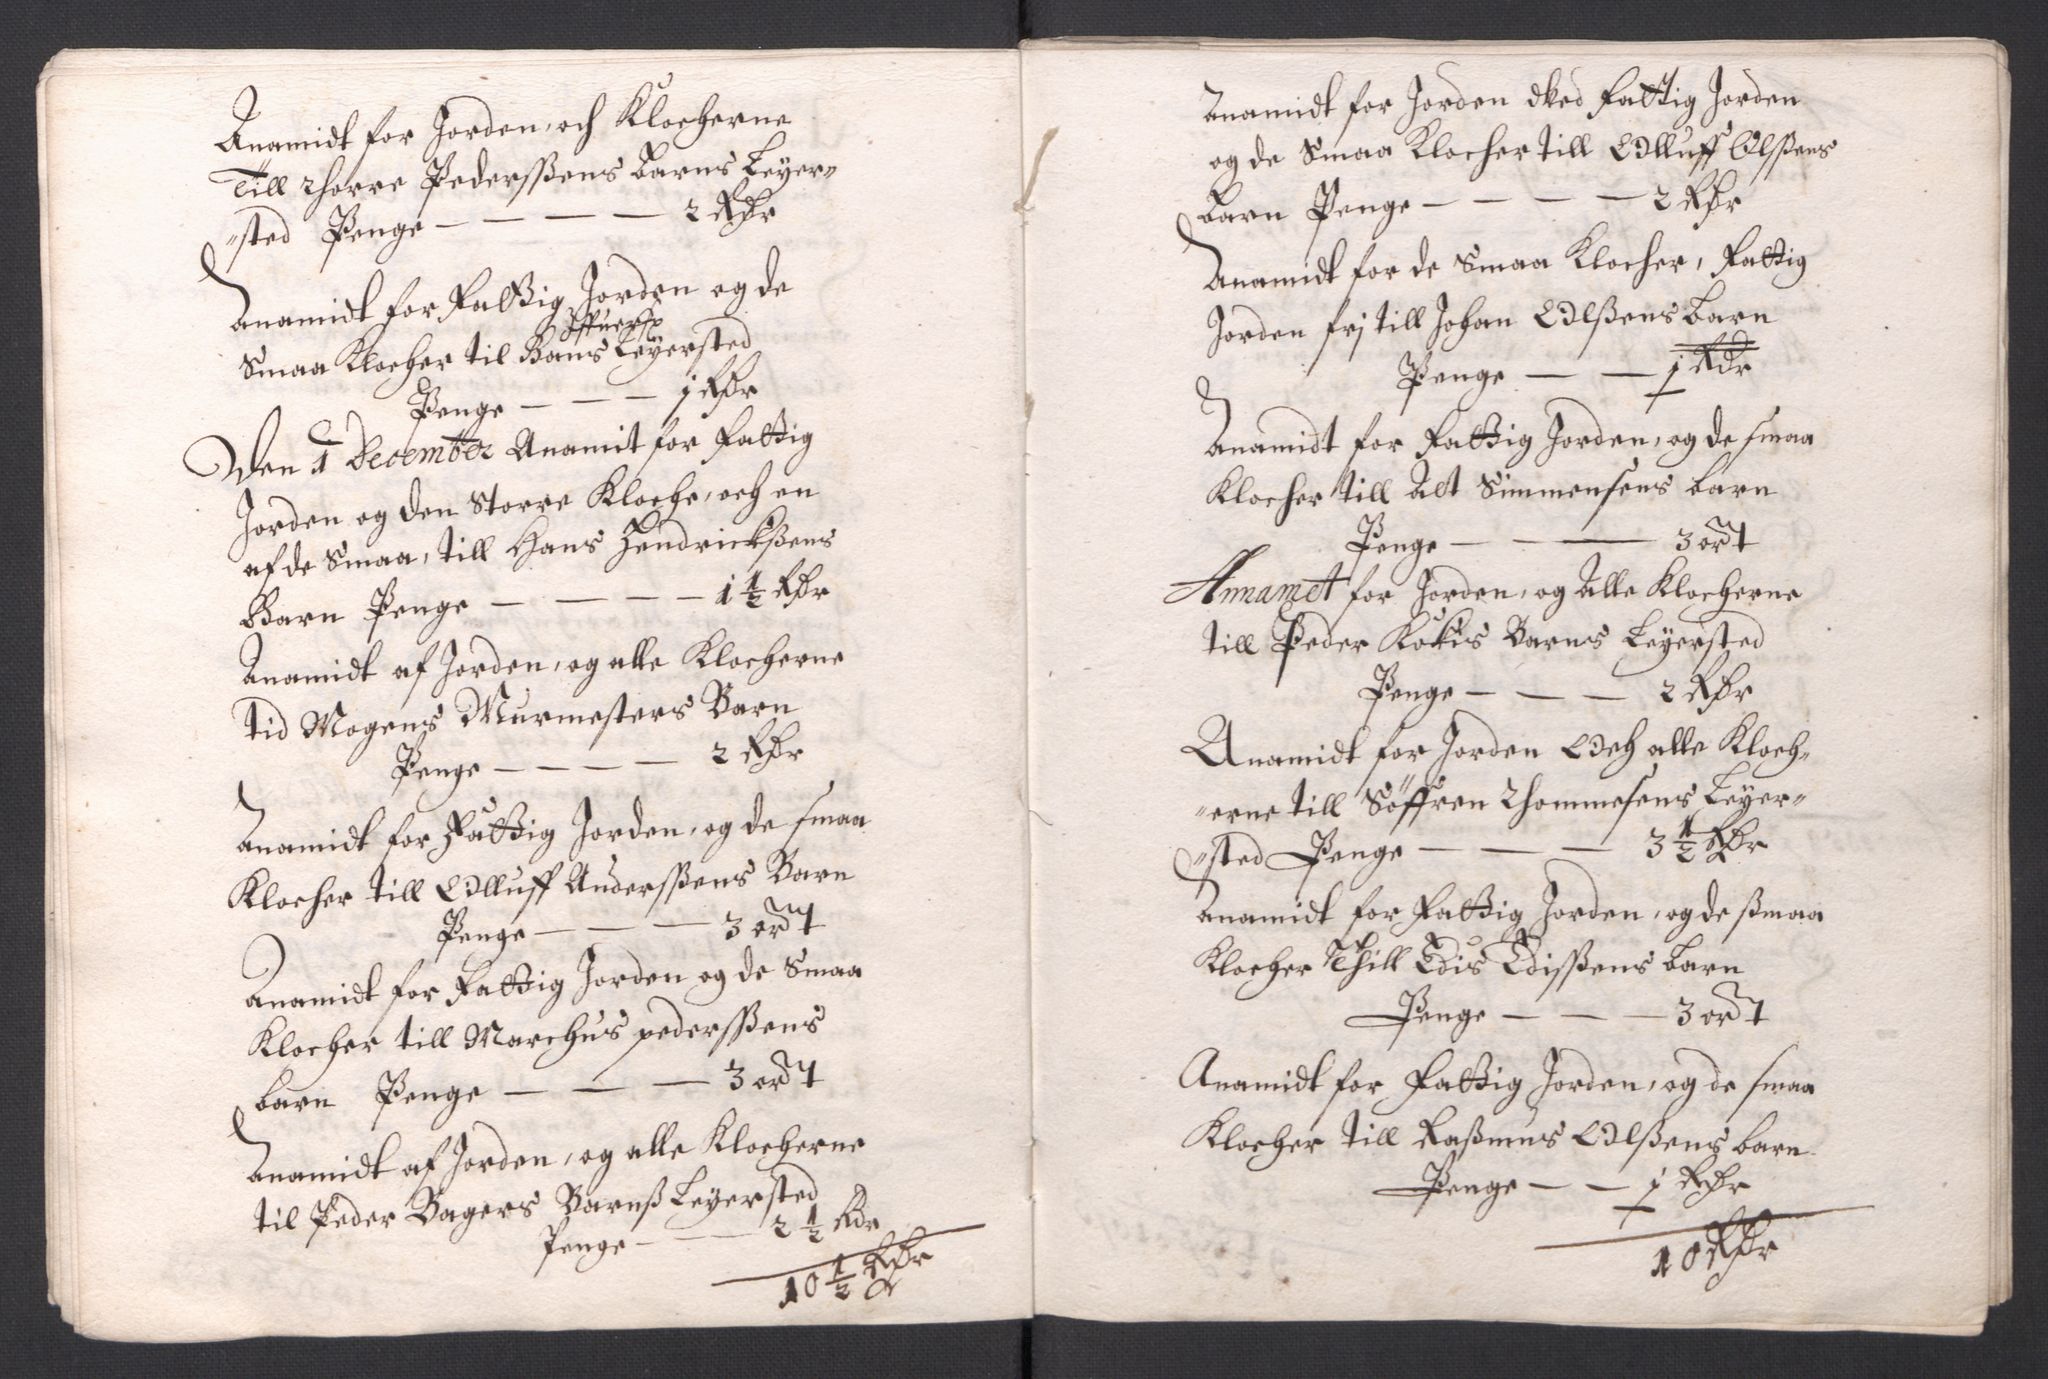 Anamidt for Jorden, och Klocherne
Till Thorre Pederssens barns Leyer-
sted Penge 2 Rdr
Anamidt for Fattig Jorden og de
Iffuers
Smaa Klocher til Hans Leyersted
Penge 1 Rdr
Den 1 December Anamit for Fattig
Jorden og den Storre Kloche, och en
af de Smaa, till Hans Hendrickßens
Barn Penge 1 1/2 Rdr
Anamidt af Jorden, og alle Klocherne
tid Mogens Murmesters Barn
Penge 2 Rdr
Anamidt for Fattig Jorden, og de smaa
Klocher till Olluff Anderssens Barn
Penge 3 ort
Anamidt for Fattig Jorden og de Smaa
Klocher till Marchus pederssens
barn Penge 3 ort
Anamidt af Jorden, og alle Klocherne
til Peder Bagers Barnß Leyersted
Penge 2 1/2 Rdr
10 1/2 Rdr
Anamidt for Jorden Fattig Jorden
og de Smaa Klocher till Olluff Olßens
barn Penge 2 Rdr
Anamidt for de Smaa Klocher, Fattig
Jorden frj till Johan Olßens barn
Penge 1 Rdr
Anamidt for Fattig Jorden, og de smaa
Klocher till Alt Simmensens barn
Penge 3 ort
Annamet for Jorden, og Alle Klocherne
till Peder Kokis Barns Leyersted
Penge 2 Rdr
Anamidt for Jorden Och alle Kloch-
erne till Söffren Thommesens Leyer-
sted Penge 3 1/2 Rdr
Anamidt for Fattig Jorden, og de ßmaa
Klocher Thill Edis Edisßens barn
Penge 3 ort
Anamidt for Fattig Jorden, og de smaa
Klocher till Raßmus Olßens barn
Penge 1 Rdr
10 Rdr